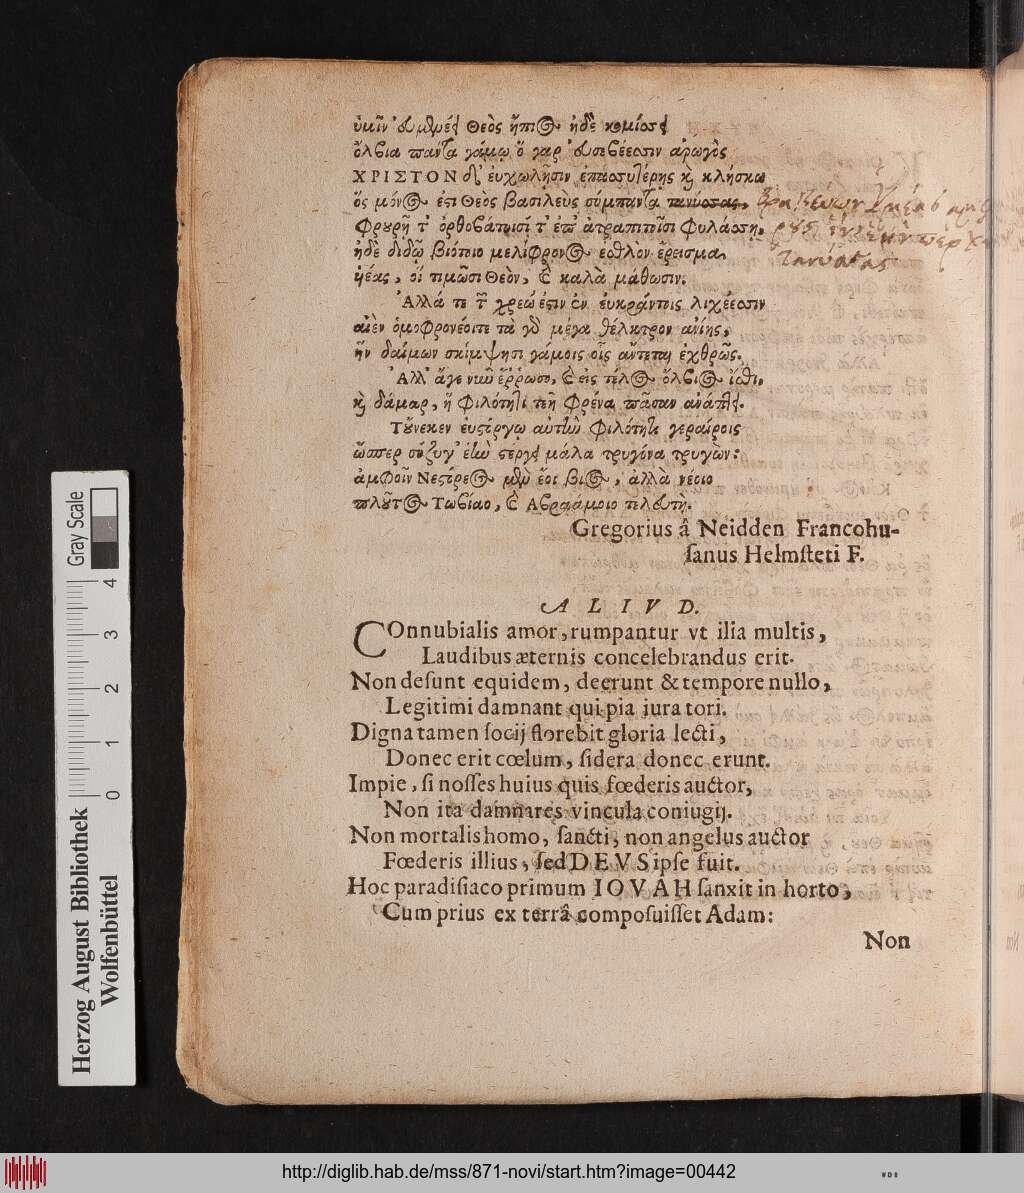 ὑμῖν εὐμενέει Θεὸς ἤπιος ἠδὲ κομίσσει
ὄλβια πάντα γάμῳ ὅ γαρ εὐσεβέεσσιν ἀρωγὸς
ΧΡΙΣΤΟΝ δι' εὐχωλῇσιν κὶ κλήσκω
ὃς μόνος ἐστὶ Θεὸς βασιλεὺς σύμπαντα τανύσσας,
Φρουρῇ τ' ὀρθοβάτοισί τ' ἐπ' ἀτραπιτοῖσι Φυλάσσῃ,
ἠδὲ διδῷ βιότοιο μελίφρονος ἐσθλὸν ἔρεισμα
υἱέας, οἵ τιμῶσι Θεὸν, καὶ καλὰ μάθωσιν.
Ἀλλά τε χρεώ ἐστιν ἐν εὐκράντοις λεχέεσσιν
αἰὲν ὁμοφρονέοιτε τὰ γὸ μέγα θέλκτρον ἀνίης,
ἢν δαίμων σκίμψησι γάμοις οἷς ἄντεται ἐχθρῶς.
Ἀλλ' ἄγε νιῦ ἔῤῥωσο, καὶ εἰς τέλος ὄλβιος ἴσθι,
καὶ δάμαρ, ἥ Φιλότητι τεῇ Φρένα πᾶσαν ἀνάπτει.
Τούνεκεν εὐστόργῳ αὐτὴν Φιλότητι γεραίροις
ὥσπερ σύζυγ' ἑὴν στέργει μάλα τρυγόνα τρυγὼν:
ἀμφοῖν Νεστόρεος μὲν ἔοι βίος, ἀλλὰ νέοιο
πλοῦτος Τωβίαο, καὶ Αβραάμοιο τελευτή.
Gregorius â Neidden Francohu-
sanus Helmsteti F.
ALIVD.
COnnubialis amor, rumpantur vt ilia multis,
Laudibus æternis concelebrandus erit.
Non desunt equidem, deerunt & tempore nullo,
Legitimi damnant qui pia iura tori.
Digna tamen socij florebit gloria lecti,
Donec erit cœlum, sidera donec erunt.
Impie, si nosses huius quis fœderis auctor,
Non ita damnares vincula coniugij.
Non mortalis homo, sancti, non angelus auctor
Fœderis illius, sed DEVS ipse fuit.
Hoc paradisiaco primum IOVAH sanxit in horto,
Cum prius ex terrâ composuisset Adam:
Non
Herzog August Bibliothek
Wolfenbüttel
0 1 2 3 4
Gray Scale
http://diglib.hab.de/mss/871-novi/start.htm?image=00442
WDB